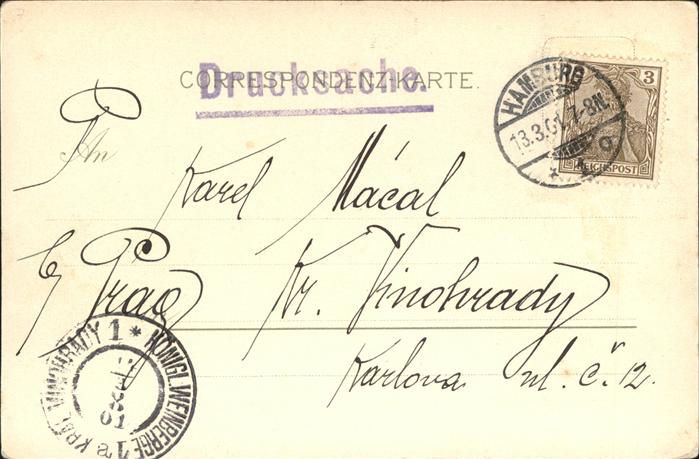 CORRESPONDENZ-KARTE.
Drucksache.
HAMBURG
13.3.01. 7-8N.
3
REICHSPOST
An
P.
Karel Mácal
Prag Kr. Vinohrady
Karlova ul. č. 12.
KRÁL. VINOHRADY 1 * KÖNIGL. WEINBERGE 1
01